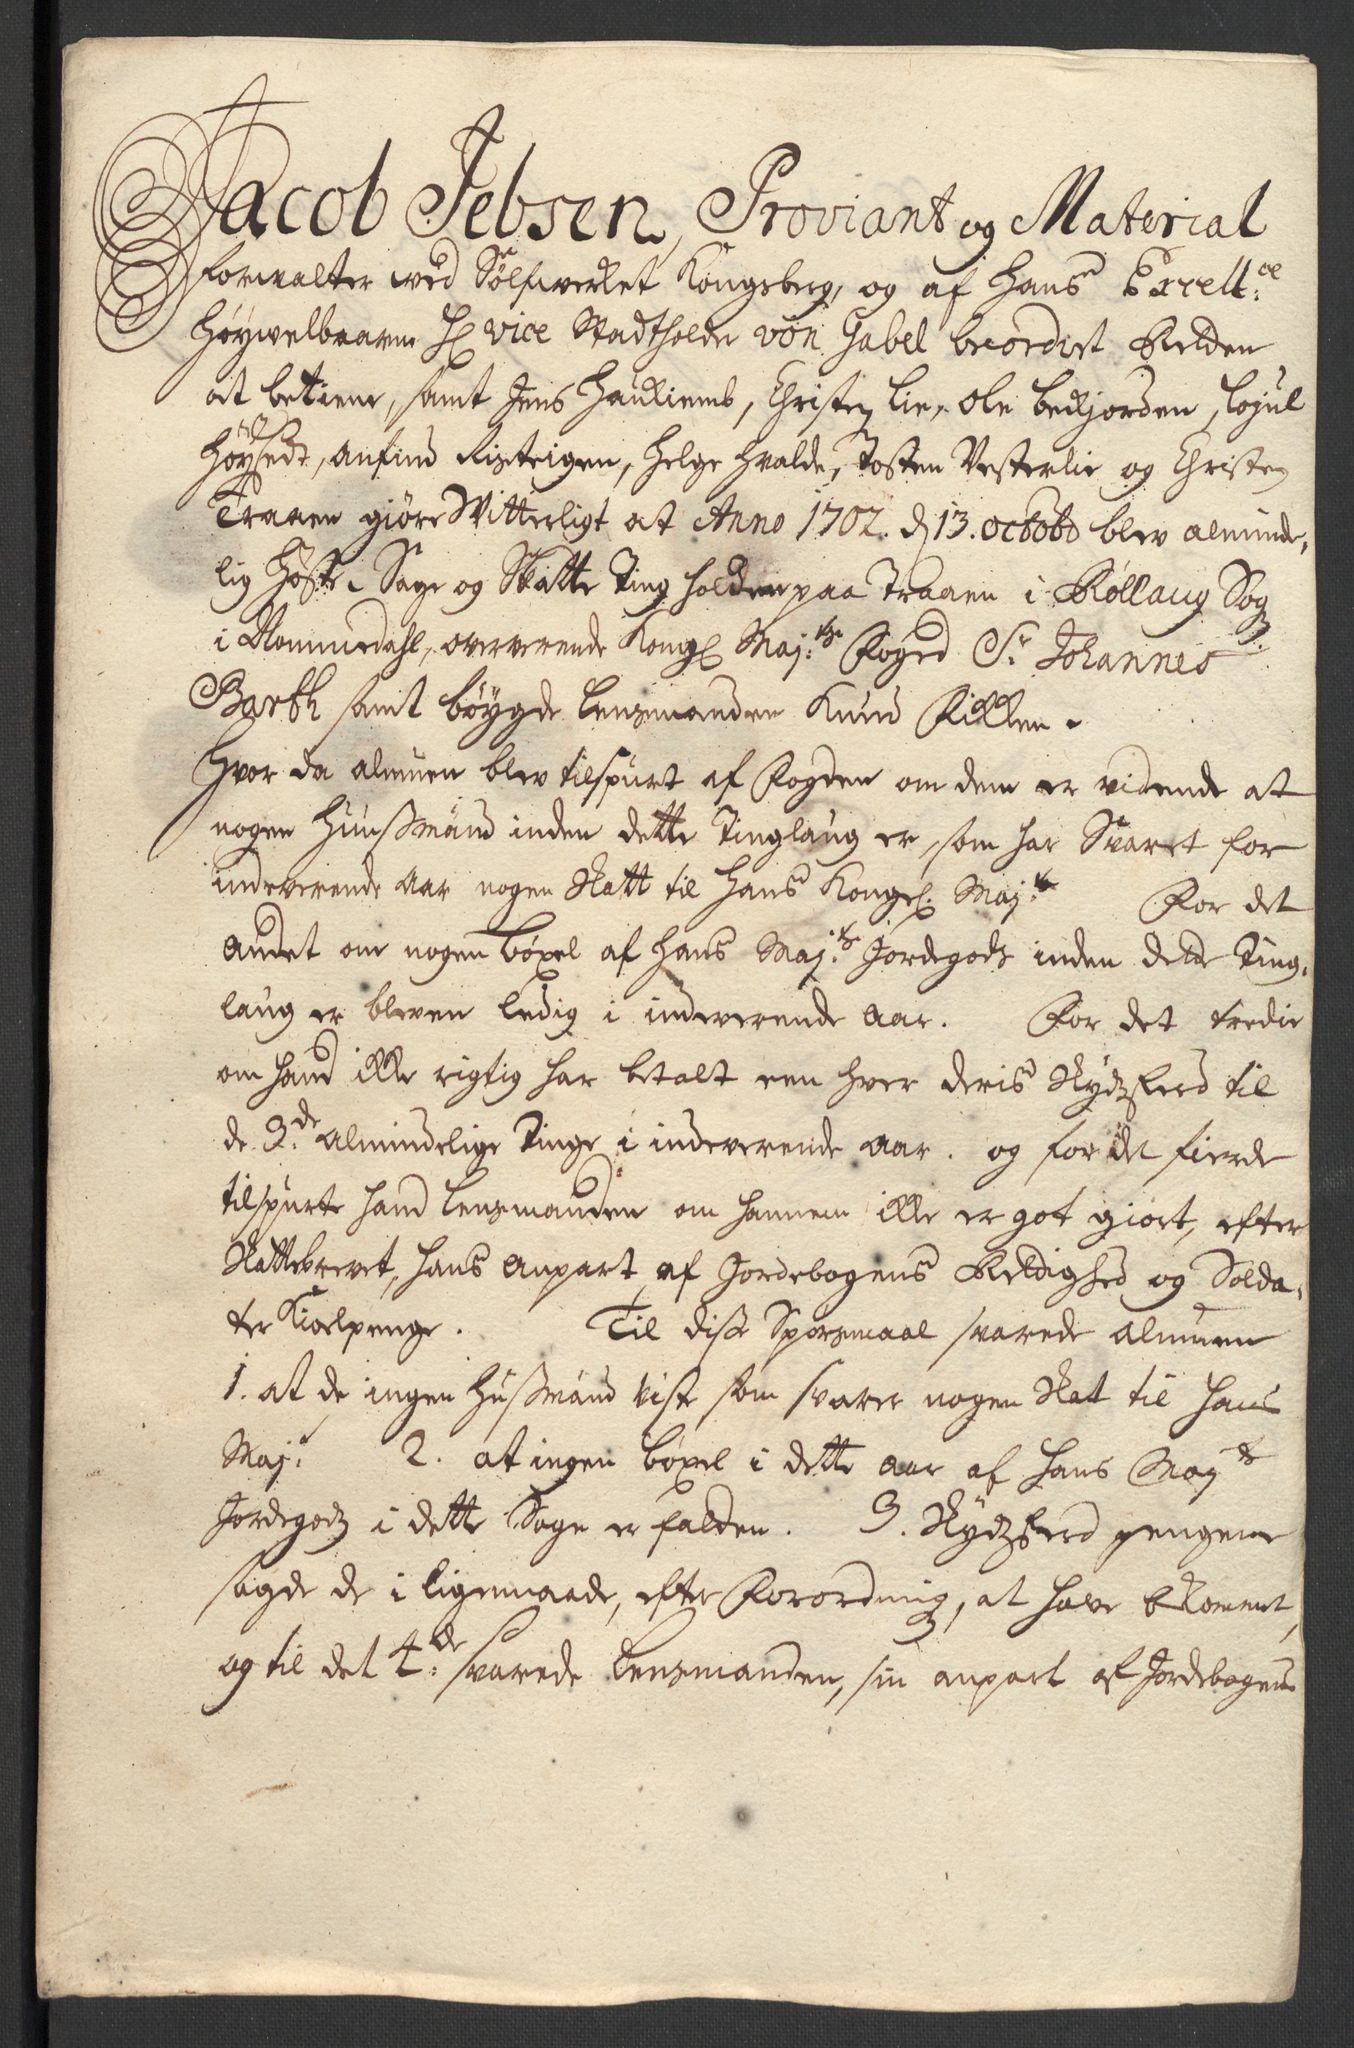 Jacob Jebsen, Proviant og Material
forvalter ved Sølfwerket Kongsberg, og af Hans Excell:ce
Høywelbaarne H. vice Stadtholder von Gabel beordret Retten
at betiene, samt Jens Haukiemb, Christen Lie, Ole Bekjorden,
Høysedt, Anfind Fisteigen, Helge Hvalde, Tosten Vesterlie og Christen
Traaen giøre Witterligt at Anno 1702. d 13. octobr blev alminde,
lig Høste, Sage og Skatte Ting holden paa Traaen i Røllaug Sogn
i Nommedahl, oververende Kongl Maj:ts Foged Sr. Johannes
Barth samt bøygde Lensmanden Knud Fikken.
Hvor da almuen blev tilspurt af Fogden om dem er vidende at
nogen Huusmænd inden dette Tinglaug er, som har Svaret for
indeverende aar nogen Skatt til Hans Kongl. Maj:t For det
andet om nogen bøxel af Hans Maj:ts Jordegods inden dette Ting,
laug er bleven ledig i indeverende aar. For det tredie
om hand ikke rigtig har betalt een hver deris Skydzferd til
de 3de almindelige Tinge i indeverende aar. og for det fierde
tilspurte hand Lensmanden om hannem ikke er got giort, efter
Skattebrevet, hans anpart af Jordebogens Rettighed og Solda,
ter Kioelpenge. Til disse Spørsmaal svarede almuen
1. at de ingen Husmænd viste som svarer nogen Skat til Hans
Maj:t 2. at ingen bøxel i dette aar af Hans Maj:ts
Jordegodz i dette Sogn er falden. 3. Skydzferd pengene
sagde de i ligemaade, efter Forordning, at have bekommet,
og til det 4:de svarede Lensmanden, sin anpart af Jordebogens